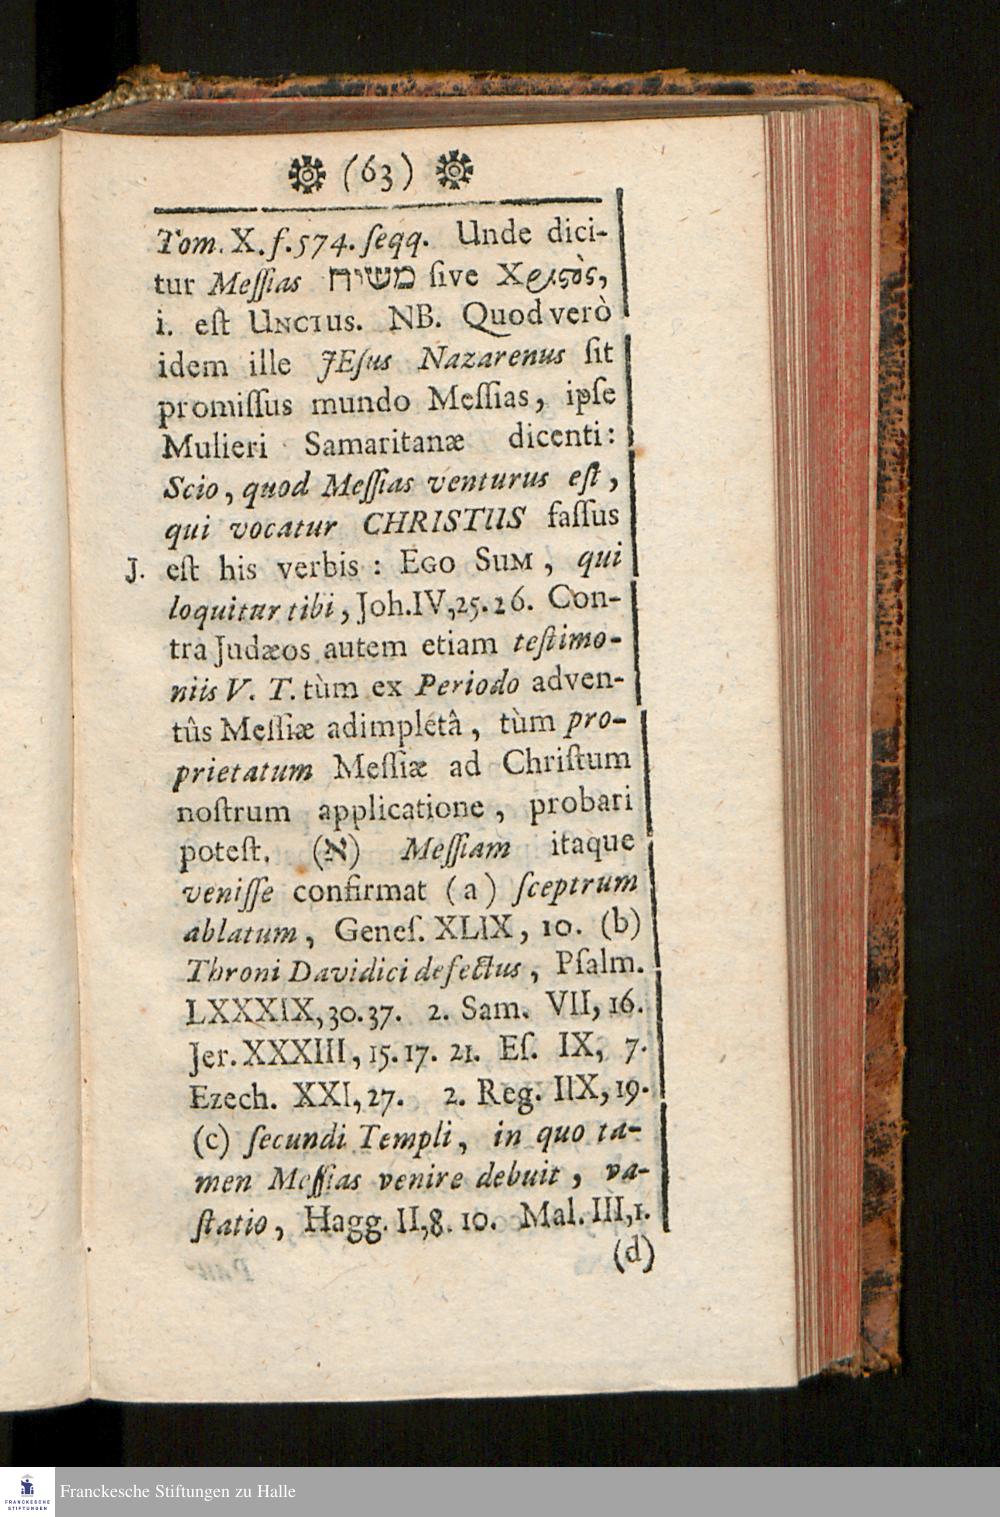 (63)
Tom. X. f. 574. ſeqq. Unde dici-
tur Meſſias משיח ſive Χριϛὸς,
i. eſt UNCTUS. NB. Quod verò
idem ille JEſus Nazarenus ſit
promiſſus mundo Meſſias, ipſe
Mulieri Samaritanæ dicenti:
Scio, quod Meſſias venturus eſt,
qui vocatur CHRISTUS faſſus
J. eſt his verbis: EGO SUM, qui
loquitur tibi, Joh. IV, 25. 26. Con-
tra Judæos autem etiam teſtimo-
niis V. T. tùm ex Periodo adven-
tûs Meſſiæ adimpletâ, tùm pro-
prietatum Meſſiæ ad Chriſtum
noſtrum applicatione, probari
poteſt. (א) Meſſiam itaque
veniſſe confirmat (a) ſceptrum
ablatum, Geneſ. XLIX, 10. (b)
Throni Davidici defectus, Pſalm.
LXXXIX, 30. 37. 2. Sam. VII, 16.
Jer. XXXIII, 15. 17. 21. Eſ. IX, 7.
Ezech. XXI, 27. 2. Reg. IIX, 19.
(c) ſecundi Templi, in quo ta-
men Meſſias venire debuit, va-
ſtatio, Hagg. II, 8. 10. Mal. III, 1.
(d)
FRANCKESCHE
STIFTUNGEN
Franckesche Stiftungen zu Halle